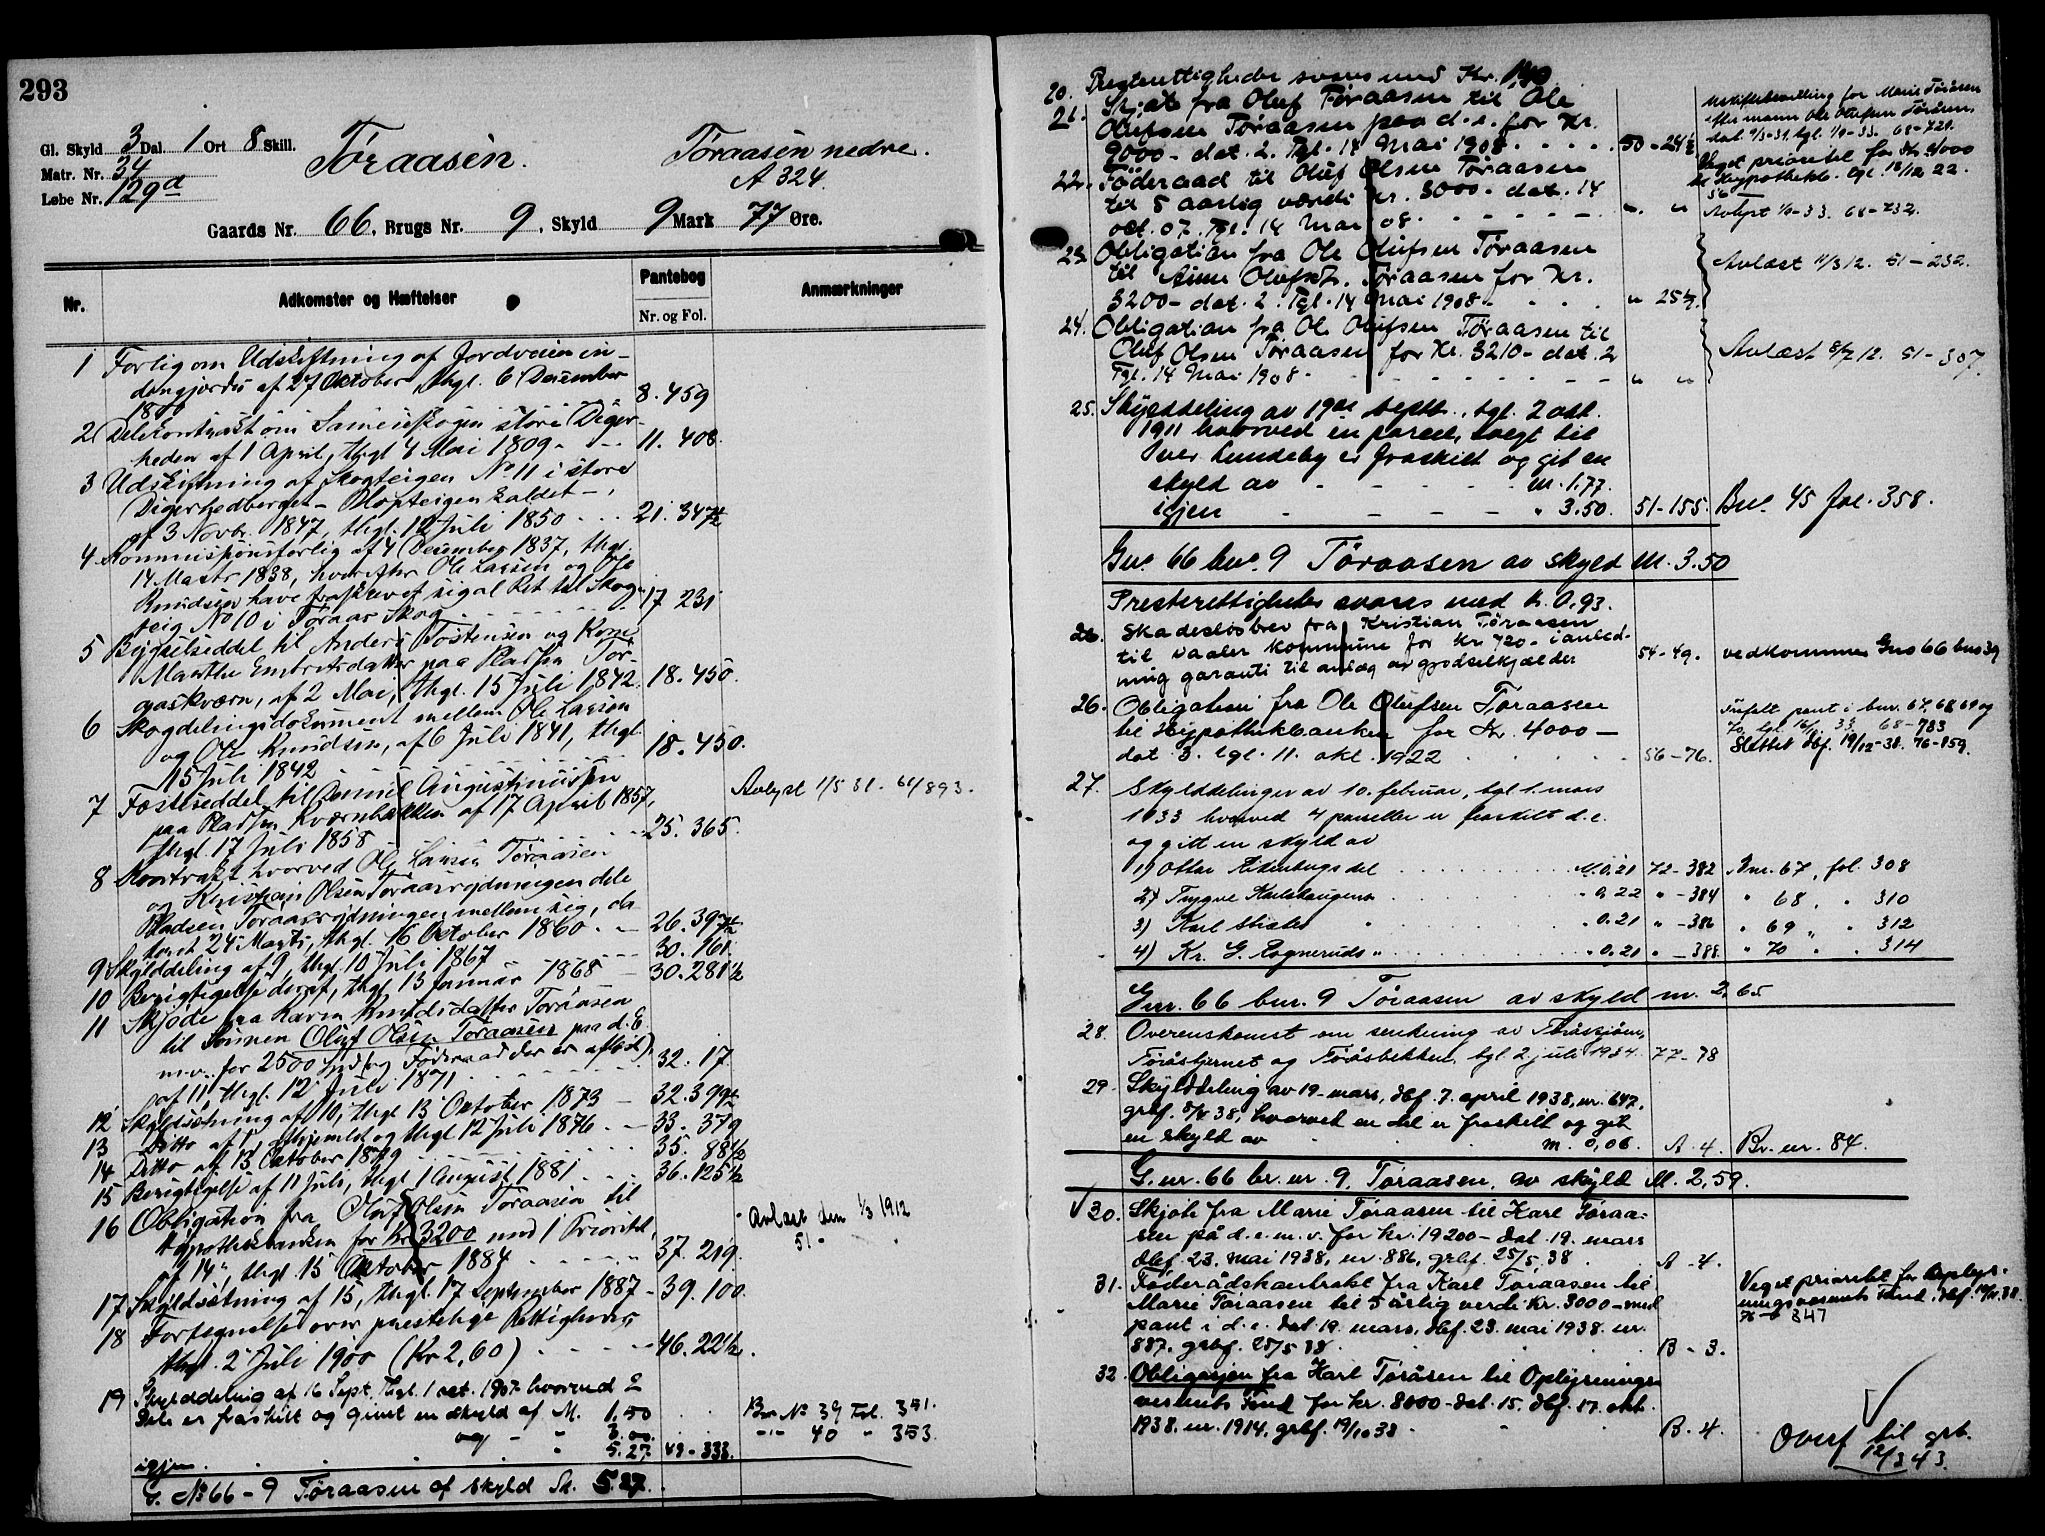 293
Gl. Skyld 3 Dal. 1 Ort 8 Skill.
Matr. Nr. 34
Løbe Nr. 129d
Tøraasen.
Tøraasen nedre.
A 324.
Gaards Nr. 66, Brugs Nr. 9, Skyld 9 Mark 77 Øre.
Nr. Adkomster og Hæftelser Pantebog Anmærkninger
Nr. og Fol.
1 Forlig om Udskiftning af Jordveien in-
dengjerdes af 27 Oktober, thgl. 6 December
1800 8. 459
2 Delekontrakt om Sameieskogen store Diger-
heden af 1 April, thgl 4 Mai 1809 - 11. 408.
3 Udskiftning af Skogteigen No 11 i store
Digerhedberget - kaldet -,
af 3 Novbr. 1847, thgl. 12 Juli 1850 21. 347
4 Kommissionsforlig af 4 December 1837, thgl.
14 Marts 1838, hvorefter Ole Larsen og Ole
Knudsen have fraskrevet sig al Ret til Skog-
teig No 10 i Tøraas Skog 17 231
5 Bygselseddel til Anders Tostensen og Kone
Marthe Embretsdatter paa Pladsen Tør-
aaskværn, af 2 Mai, thgl. 15 Juli 1842. 18. 450.
6 Skogdelingsdokument mellem Ole Larsen
og Ole Knudsen, af 6 Juli 1841, thgl
15 Juli 1842 18. 450.
7 Fæsteseddel til Augustinussen
paa Pladsen Kværnbakken af 17 April 1857,
thgl. 17 Juli 1858 25. 365. Avlyst 1/5 31. 61/893.
8 Kontrakt hvorved Ole Larsen Tøraasen
og Kristian Olsen Tøraasrydningen dele
Pladsen Tøraasrydningen mellem sig, da-
teret 24 Marts, thgl. 16 Oktober 1860. 26. 397
9 Skylddeling af 9, thgl. 10 Juli 1867 30. 161
10 Berigtigelse deraf, thgl. 13 Januar 1868 30. 281½
11 Skjøde fra Karen Knudsdatter Tøraasen
til Sønnen Oluf Olsen Tøraasen paa d. E
m.v. for 2500 Spd (og Føderaad der er aflyst),
af 11, thgl. 12 Juli 1871 32. 17.
12 Skyldsætning af 10, thgl 13 Oktober 1873 32. 399½
13 Ditto af 1, hjemlet og thgl 12 Juli 1876 33. 379
14 Ditto af 13 Oktober 1879 35. 88½
15 Berigtigelse af 11 Juli, thgl 1 August 1881 36. 125½
16 Obligation fra Oluf Olsen Tøraasen til
Hypothekbanken for Kr 3200 med 1 Prioritet,
af 14, thgl. 15 Oktober 1884 37. 219. Avlæst den 1/3 1912
51
17 Skyldsætning af 15, thgl. 17 September 1887 - 39. 100.
18 Fortegnelse over præstelige Rettigheder,
thgl. 2 Juli 1900 (Kr 2,60) 46. 22½.
19 Skylddeling af 16 Sept. Thgl. 1 oct. 1907 hvorved 2
Dele er fraskilt og givet en skyld af M. 1.50 Br No 39 Fol. 351.
og - " 3.00. -"- 40 " 353.
igjen . . . " 5.27. 49-333.
G. No 66-9 Tøraasen af skyld M. 5.27.
20. Presterettigheder svares med Kr. 1,40
21. Skjøte fra Oluf Tøraasen til Ole
Olufsen Tøraasen paa d. e. for Kr.
9000- dat. 2. Tgl. 14 Mai 1908 50-24½
Uskiftebevilling for Marie Tøråsen
efter mann Ole Olufsen Tøråsen
22. Føderaad til Oluf Olsen Tøraasen
til 5 aarlig værdi kr. 3000- dat. 14
oct. 07. Tgl. 14 Mai 08 " "
Veget prioritet for kr 4000
til Hypothekb. tgl. 12/12 22.
56
Avlyst 1/9-33. 68-732.
23. Obligation fra Ole Olufsen Tøraasen
til Olufsd. Tøraasen for Kr.
3200- dat. 2. Tgl. 14 Mai 1908 " 25½
Avlæst 11/3 12. 51-232.
24. Obligation fra Ole Olufsen Tøraasen til
Oluf Olsen Tøraasen for Kr. 3210- dat. 2
Tgl. 14 Mai 1908 " "
Avlæst 8/7 12. 51-307.
25. Skylddeling av 19de septb., tgl. 2 okt.
1911 hvorved en parcel, solgt til
Iver Lundeby er fraskilt og git en
skyld av m. 1.77.
igjen " 3.50. 51-155. Bno. 45 fol. 358.
Gno 66 bno. 9 Tøraasen av skyld M. 3.50
Presterettigheter svares med kr. 0.93.
26. Skadesløsbrev fra Kristian Tøraasen
til Vaaler kommune for kr 720- i anled-
ning garanti til anlæg av gjødselkjælder 54-49. vedkommer Gno 66 bno 39
26. Obligation fra Ole Olufsen Tøraasen
til Hypothekbanken for Kr. 4000-
dat. 3. tgl. 11. okt. 1922 56-76.
Frafalt pant i bnr. 67, 68, 69 og
70, tgl. 16/11 33. 68-783
Slettet dbf. 19/12-38. 76-859.
27. Skylddelinger av 10. februar, tgl 1. mars
1933 hvorved 4 parseller er fraskilt d.e.
og gitt en skyld av
1) Ottar del M. 0.21 72-382 Bnr. 67, fol. 308
2) Trygve Karlshaugens " 0.22 " -384 " 68, " 310
3) Karl " 0.21 " -386 " 69, " 312
4) Kr. G. Rogneruds " " 0.21 " -388 " 70 " 314
Gnr. 66 bnr. 9 Tøraasen av skyld m. 2,65
28. Overenskomst om senkning av Tøråssjøen,
Tøråstjernet og Tøråsbekken, tgl. 2 juli 1934. 77-78
29. Skylddeling av 19. mars, dbf. 7. april 1938, nr. 647,
grbf. 8/4 38, hvorved en del er fraskilt og git
en skyld av m. 0,06. A-4. Br. nr. 84.
G. nr. 66 br. nr. 9. Tøraasen, av skyld M. 2,59.
30. Skjøte fra Marie Tøraasen til Karl Tøraa-
sen på d. e. m. v. for kr. 19200- dat. 19. mars
dbf. 23. mai 1938, nr. 886, grbf. 25/5 38 A-4.
31. Føderådskontrakt fra Karl Tøraasen til
Marie Tøraasen til 5 årlig verdi kr. 3000- med
pant i d. e. dat. 19. mars, dbf. 23. mai 1938. nr.
887. grbf. 25/5 38. B-3.
Veget prioritet for Opløs-
76-347
32. Obligasjon fra Karl Tøråsen til Opløsnings-
vesenets Fond for kr. 8000- dat. 15. dbf. 17. okt.
1938. nr. 1914, grbf. 19/10 38 B-4.
Overf til grb.
12/3 43.